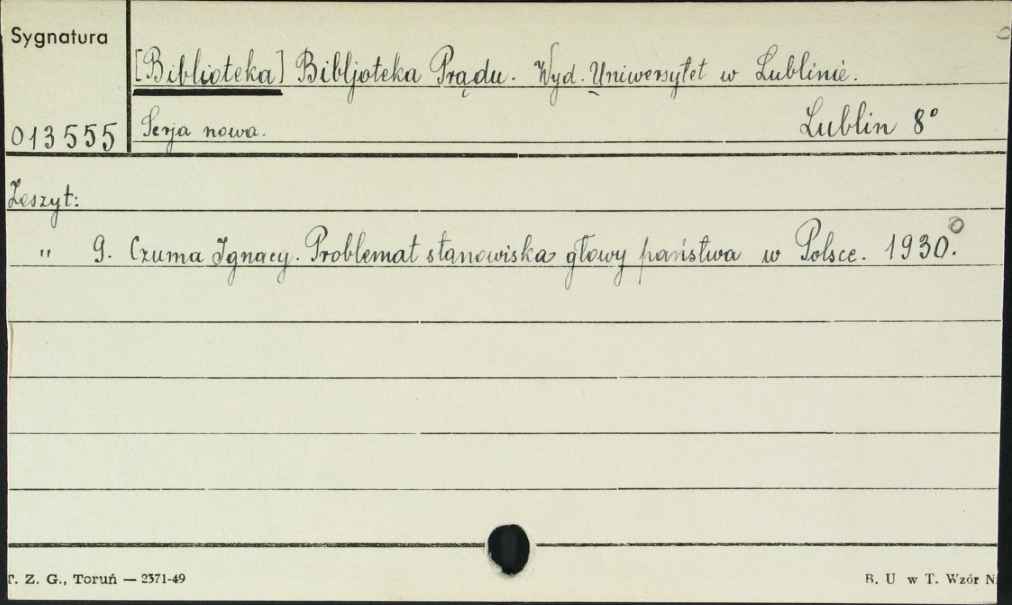 Sygnatura
[Biblioteka] Bibljoteka Prądu. Wyd. Uniwersytet w Lublinie.
013555 Serja nowa. Lublin 8°
Zeszyt:
" 9. Czuma Ignacy. Problemat stanowiska głowy państwa w Polsce. 1930.
T. Z. G., Toruń — 2371-49
B. U w T. Wzór N